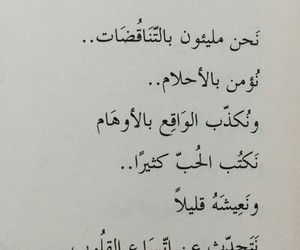 نَحن مليئون بالتَّنَاقُضَات..
نُؤمن بالأحلام..
ونُكذّب الوَاقِع بالأوهَام
نَكتُب الحُبّ كثيرًا..
ونَعِيشَهُ قليلاً
نَتَحدّث عن اتّساع القلُوب